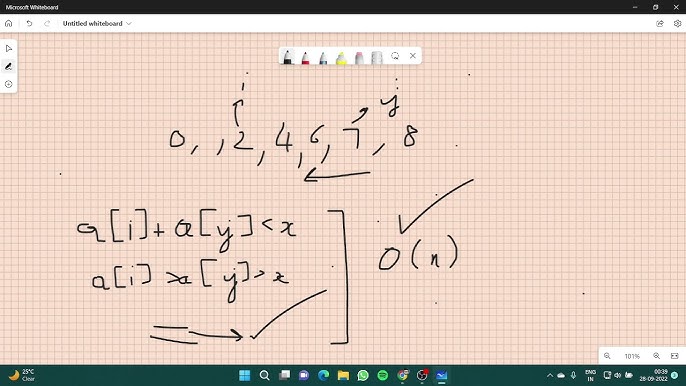 Microsoft Whiteboard
Untitled whiteboard
i
j
0, , 2, 4, 6, 7, 8
a[i] + a[j] < x
a[i] > a[j] > x
O(n)
101%
25°C
Clear
ENG
IN
00:39
28-09-2022